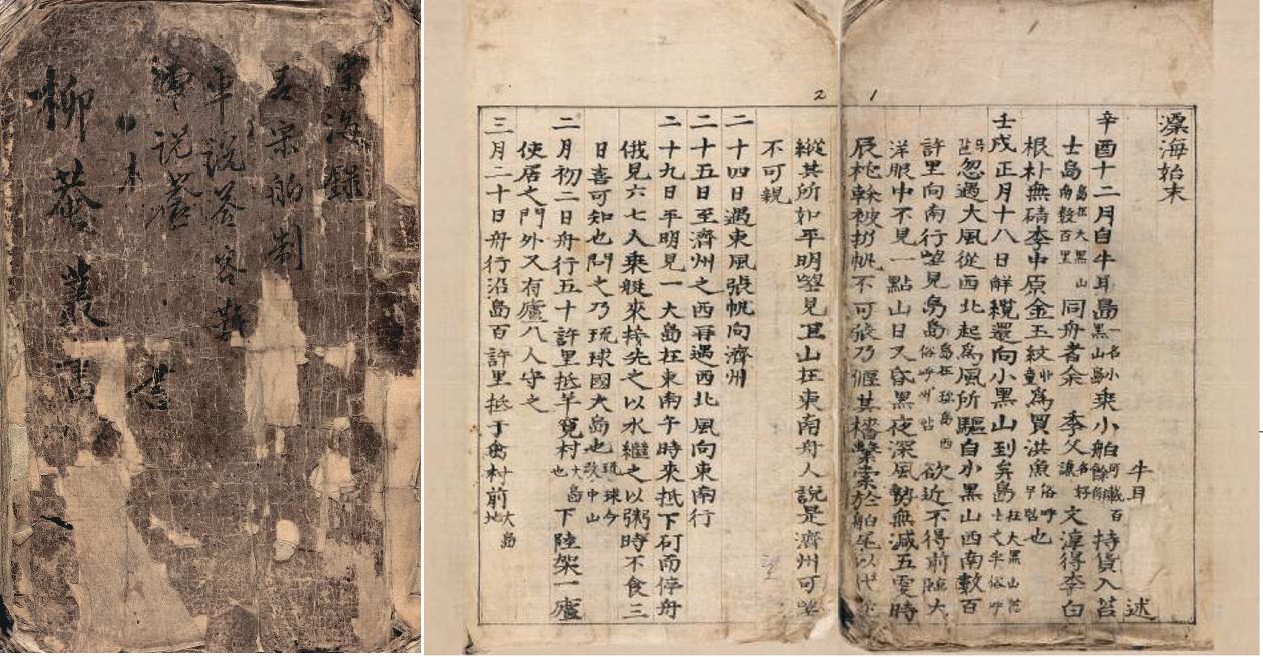 漂海錄
宋舶制
車說答客難
說答
柳菴叢書
1
漂海始末
牛耳 述
辛酉十二月自牛耳島一名小黑山島乘小舶可載百餘斛持貨入苔
士島島在大黑山南數百里同舟者余 李父名好謙文淳得李白
根朴無碃李中原金玉紋童也爲買洪魚俗呼也
壬戌正月十八日解纜還向小黑山到弁島在大黑山
忽遇大風從西北起爲風所驅自小黑山西南數百
許里向南行望見島島欲近不得前臨大
洋眼中不見一點山日又昏黑夜深風勢無減五更時
辰柁榦被拗帆不可張乃偃其檣繫索於舶尾以代
2
縱其所如平明望見巨山在東南舟人說是濟州可望
不可親
二十四日遇東風張帆向濟州
二十五日至濟州之西再遇西北風向東南行
二十九日平明見一大島在東南午時來抵下矴而停舟
俄見六七人乘艇來持先之以水繼之以粥時不食三
日喜可知也問之乃琉球國大島也琉球今改中山
二月初二日舟行五十許里抵羊寬村大島也下陸架一廬
使居之門外又有廬八人守之
三月二十日舟行沿島百許里抵于禽村前大島地